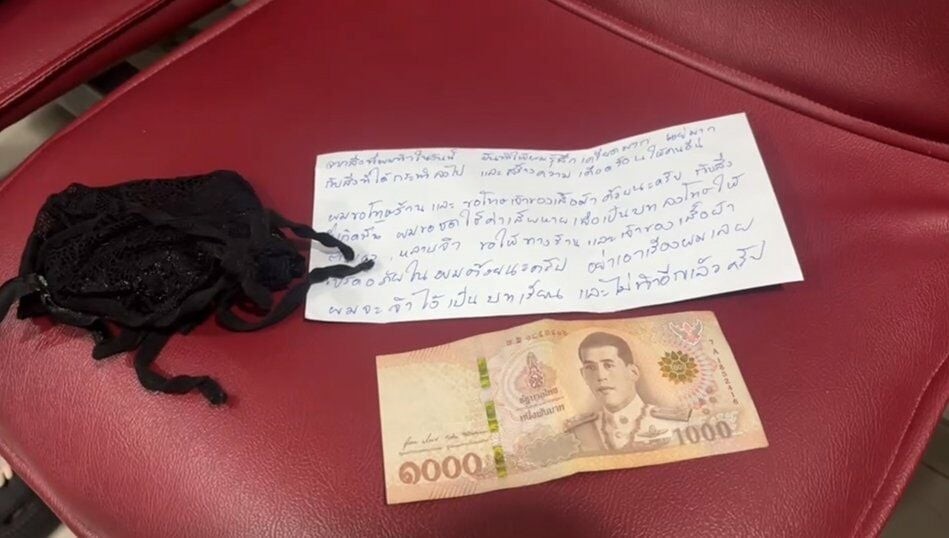 จากสิ่งที่ผมทำในวันนี้ มันทำให้ผมรู้สึกเครียดมาก
กับสิ่งที่ได้กระทำลงไป และสร้างความเดือดร้อนให้คนอื่น
ผมขอโทษร้าน และ ขอโทษเจ้าของเสื้อผ้า ด้วยนะครับ กับสิ่ง
ที่เกิดขึ้น ผมขอชดใช้ค่าเสียหายเพื่อเป็นบทลงโทษให้
หลาบจำ ขอให้ทางร้าน และเจ้าของเสื้อผ้า
อภัยให้ผมด้วยนะครับ อย่าเอาเรื่องผมเลย
ผมจะจำไว้เป็นบทเรียน และไม่ทำอีกแล้วครับ
7A1852416
รัฐบาลไทย
หนึ่งพันบาท
๑๐๐๐
1000